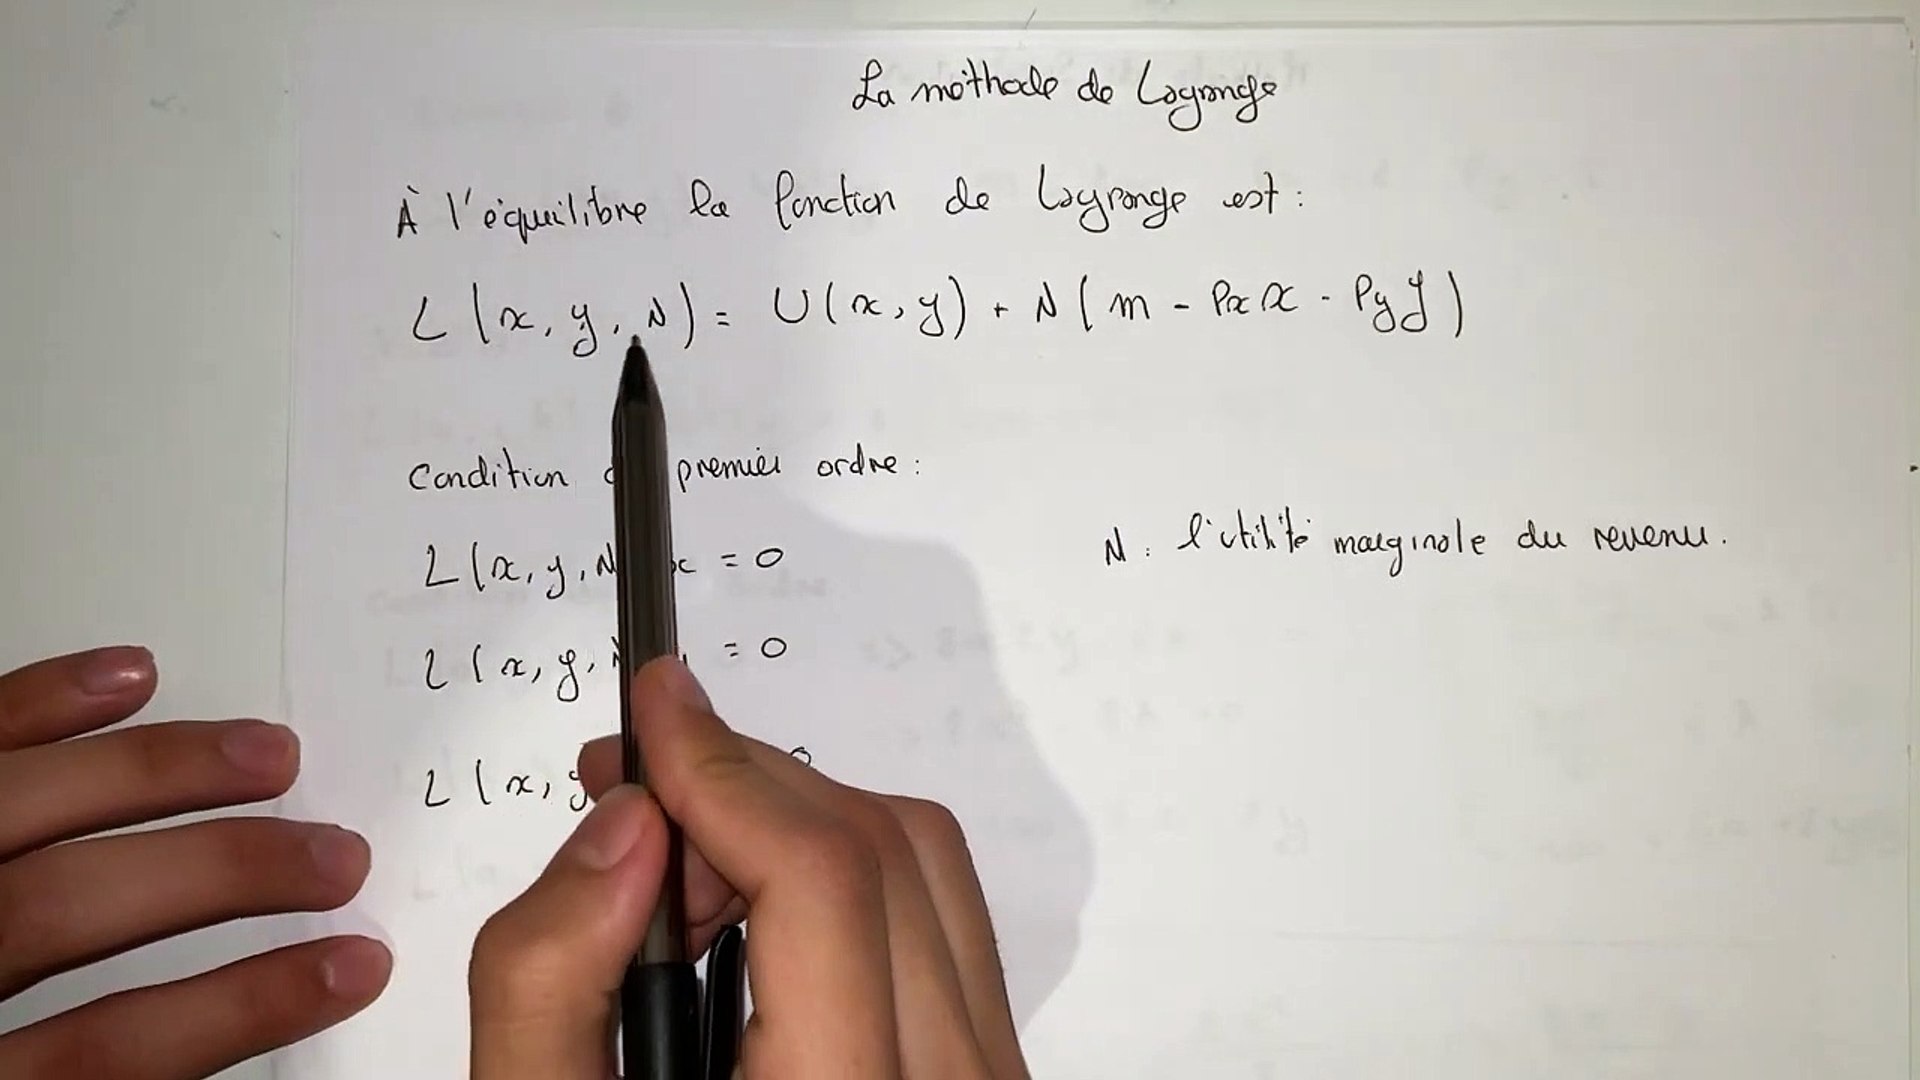 La méthode de Lagrange
À l'équilibre la fonction de Lagrange est :
L(x, y, N) = U(x, y) + N(m - Px x - Py y)
Condition premier ordre :
L(x, y, N x = 0
N : l'utilité marginale du revenu.
L(x, y, N = 0
L(x, y 0